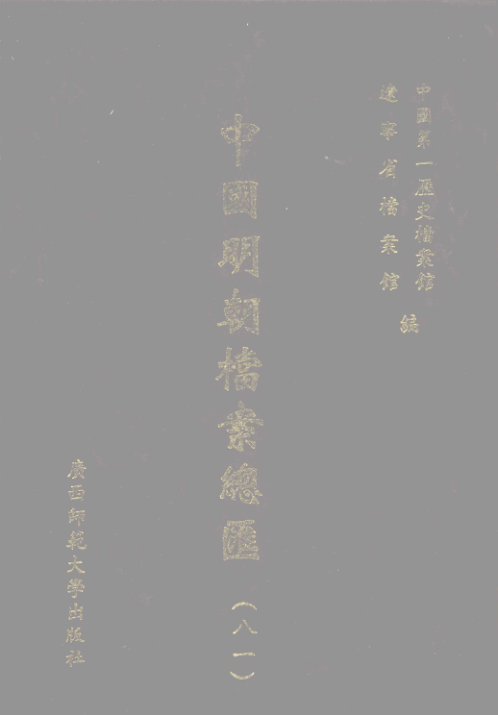 中國第一歷史檔案館
遼寧省檔案館
編
中國明朝檔案總匯
(八一)
廣西師範大學出版社